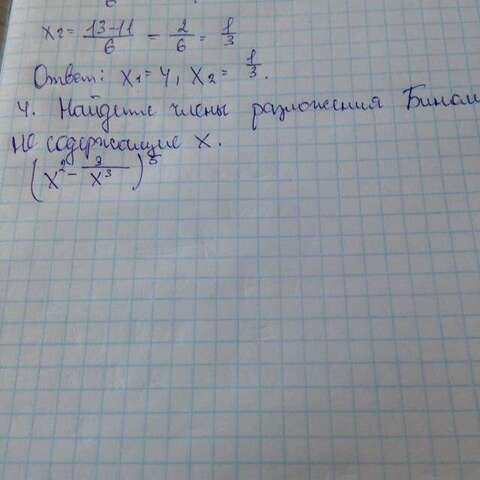 x₂ = 13-11/6 = 2/6 = 1/3
Ответ: x₁ = 4, x₂ = 1/3.
4. Найдите члены разложения Бином
не содержащие x.
(x² - 3/x³)⁵